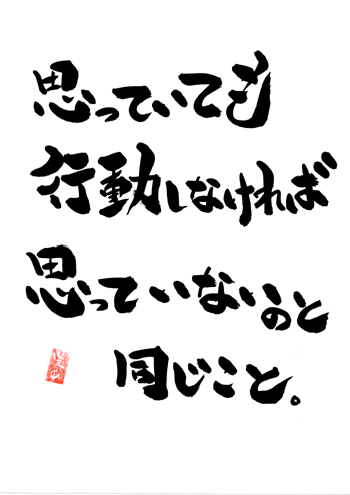 思っていても
行動しなければ
思っていないのと
同じこと。